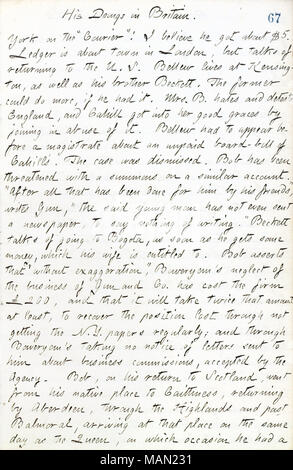 His Doings in Britain.
67
York on the "Courier". I believe he got about $5.
Ledger is about town in London, but talks of
returning to the U. S. Bellew lives at Kensing-
ton, as well as his brother Beckett. The former
could do more, if he had it. Mrs. B. hates and detests
England, and Cahill got into her good graces by
joining in abuse of it. Bellew had to appear be-
fore a magistrate about an unpaid board-bill of
Cahill's. The case was dismissed. Bob has been
threatened with a summons on a similar account.
"After all that has been done for him by his friends,"
writes Gun, "the said young man has not even sent
a newspaper, to say nothing of writing." Beckett
talks of going to Bogota, as soon as he gets some
money, which his wife is entitled to. Bob asserts
that "without exaggeration" Boweryem's neglect of
the business of Gun and Co. has cost the firm
£ 200, and that it will take twice that amount
at least, to recover the position lost through not
getting the N.Y. papers regularly, and through
Boweryem's taking no notice of letters sent to
him about business commissions, accepted by the
Agency. Bob, on his return to Scotland, went
from his native place to Caithness, returning
by Aberdeen, through the Highlands and past
Balmoral, arriving at that place on the same
day as the Queen, on which occasion he had a
alamy
Image ID: MAN231
www.alamy.com